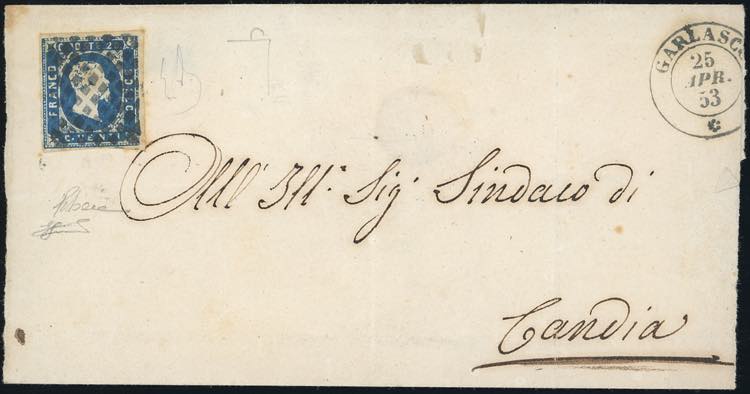 C. POSTE 20
FRANCO
BOLLO
VENTI
GARLASCO
25
APR.
53
All' Ill.mo Sig.r Sindaco di
Candia